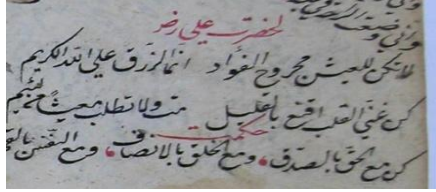 لحضرت علي رضـ
لا تكن للعيش مجروح الفؤاد انما الرزق علي الله الكريم
كن غني القلب اقنع بالقليل مت ولا تطلب معيشا من لئيم
حكمت
كن مع الحق بالصدق، ومع الخلق بالانصاف، ومع النفس